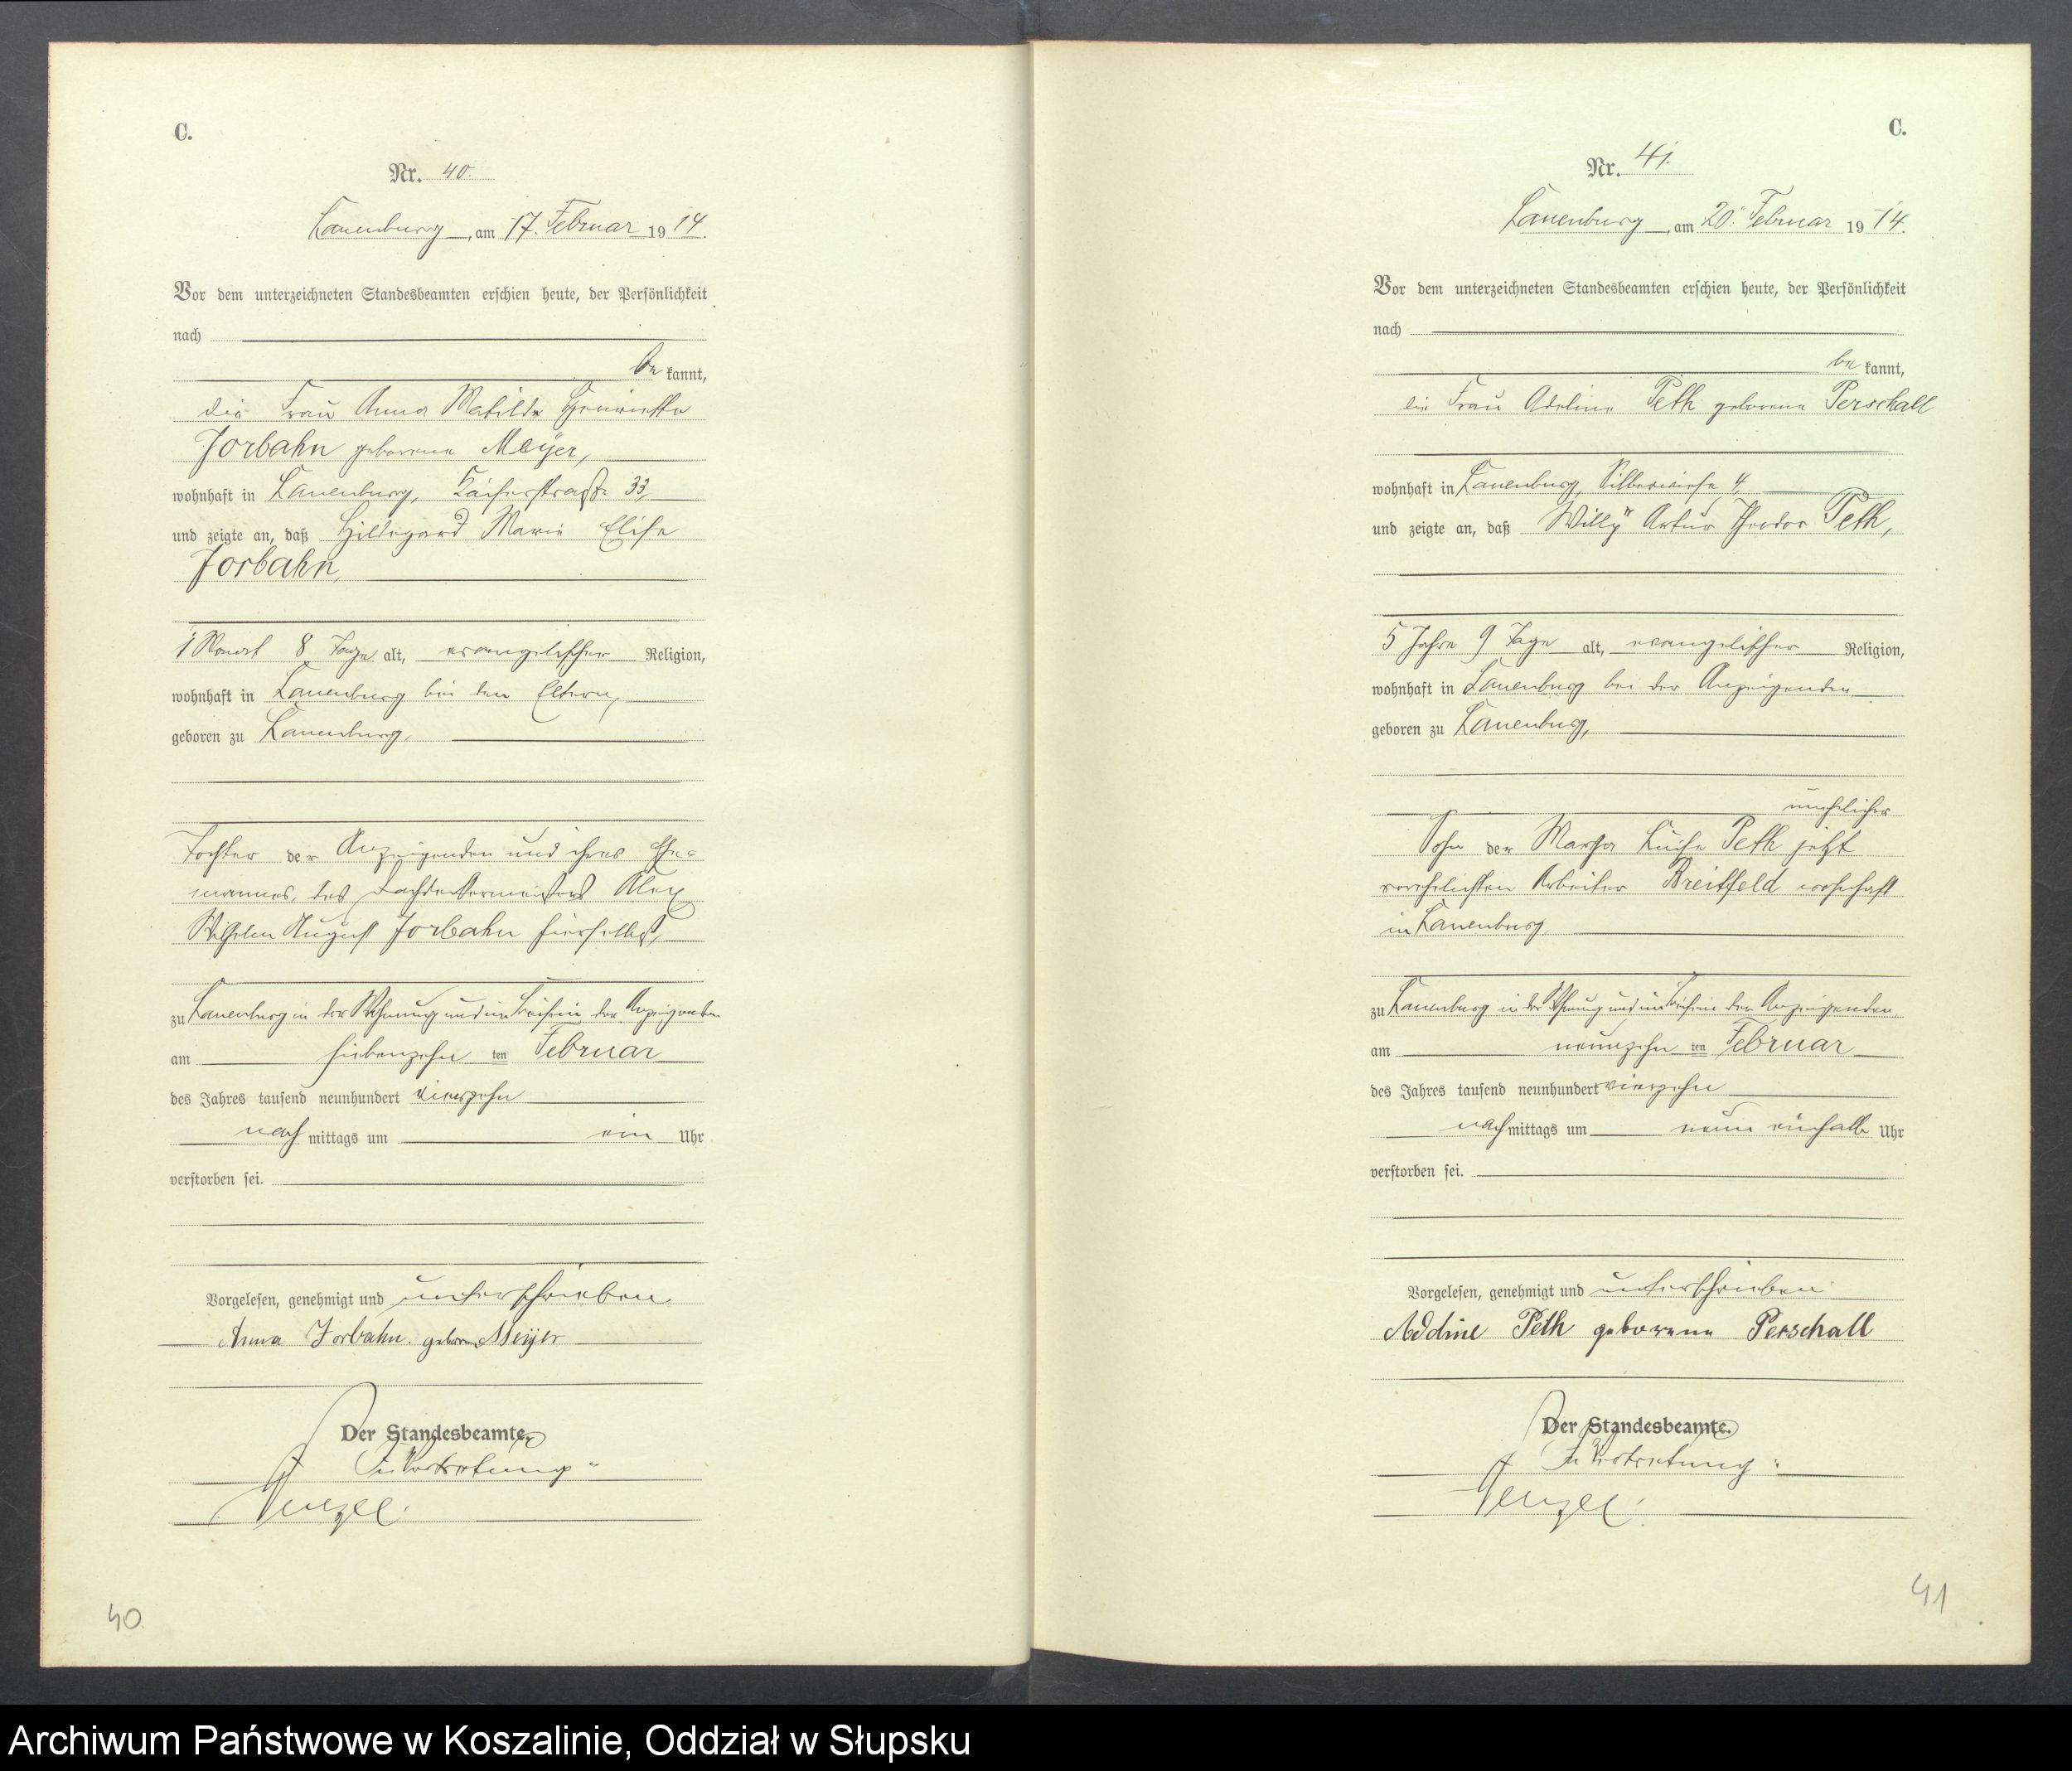 C.
Nr. 40.
Lauenburg, am 17. Februar 1914.
Vor dem unterzeichneten Standesbeamten erschien heute, der Persönlichkeit
nach
be kannt,
die Frau Anna Matilde Henriette
Jorbahn geborene Meÿer,
wohnhaft in Lauenburg, Kaiserstraße 33,
und zeigte an, daß Hildegard Marie Elise
Jorbahn,
1 Monat 8 Tage alt, evangelischer Religion,
wohnhaft in Lauenburg bei den Eltern,
geboren zu Lauenburg,
Tochter der Anzeigenden und ihres Ehe=
mannes, des Dachdeckermeisters Alex
Wilhelm August Jorbahn hierselbst,
zu Lauenburg in der Wohnung und im Beisein der Anzeigenden
am siebenzehn ten Februar
des Jahres tausend neunhundert vierzehn
nach mittags um ein Uhr
verstorben sei.
Vorgelesen, genehmigt und unterschrieben
Anna Jorbahn. geborene Meijer
Der Standesbeamte.
In Vertretung.
Wenzel.
40.
C.
Nr. 41.
Lauenburg, am 20. Februar 1914.
Vor dem unterzeichneten Standesbeamten erschien heute, der Persönlichkeit
nach
be kannt,
die Frau Adeline Peth geborene Perschall
wohnhaft in Lauenburg, Silberwiese 4,
und zeigte an, daß Willÿ Artur Theodor Peth,
5 Jahre 9 Tage alt, evangelischer Religion,
wohnhaft in Lauenburg bei der Anzeigenden
geboren zu Lauenburg,
unehelicher
Sohn der Martha Luise Peth jetzt
verehelichten Arbeiter Breitfeld wohnhaft
in Lauenburg,
zu Lauenburg in der Wohnung und im Beisein der Anzeigenden
am neunzehn ten Februar
des Jahres tausend neunhundert vierzehn
nach mittags um neun einhalb Uhr
verstorben sei.
Vorgelesen, genehmigt und unterschrieben
Adeline Peth geborene Perschall
Der Standesbeamte.
In Vertretung:
Wenzel.
41
Archiwum Państwowe w Koszalinie, Oddział w Słupsku